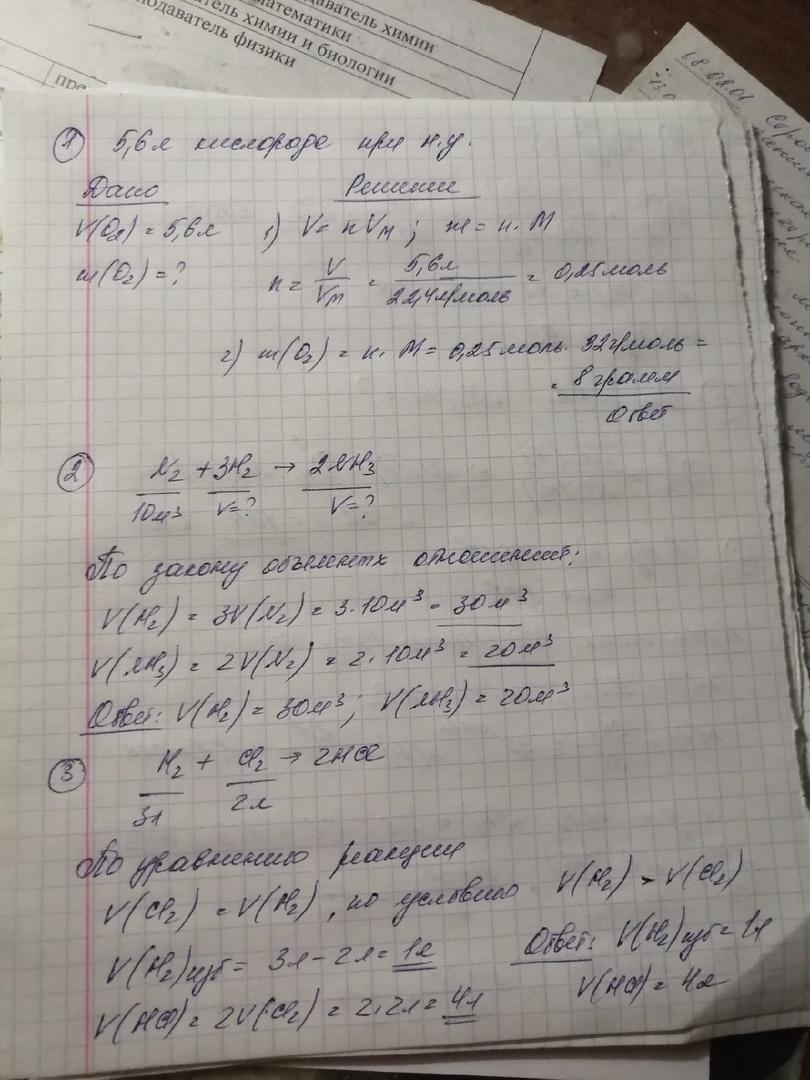 даватель химии
математики
атель химии и биологии
подаватель физики
пре
68.0201
1 5,6 л кислорода при н.у.
Дано Решение
V(O2) = 5,6 л 1) V = n VM ; m = n · M
m(O2) = ? n = V/VM = 5,6 л/22,4 л/моль = 0,25 моль
2) m(O2) = n · M = 0,25 моль · 32 г/моль =
= 8 грамм
Ответ
2 N2 + 3H2 → 2NH3
10 м³ V = ? V = ?
По закону объемных отношений:
V(H2) = 3V(N2) = 3 · 10 м³ = 30 м³
V(NH3) = 2V(N2) = 2 · 10 м³ = 20 м³
Ответ: V(H2) = 30 м³ ; V(NH3) = 20 м³
3 H2 + Cl2 → 2HCl
3л 2л
По уравнению реакции
V(Cl2) = V(H2) , по условию V(H2) > V(Cl2)
V(H2) изб = 3л - 2л = 1л Ответ: V(H2) изб = 1л
V(HCl) = 2V(Cl2) = 2 · 2л = 4л V(HCl) = 4л